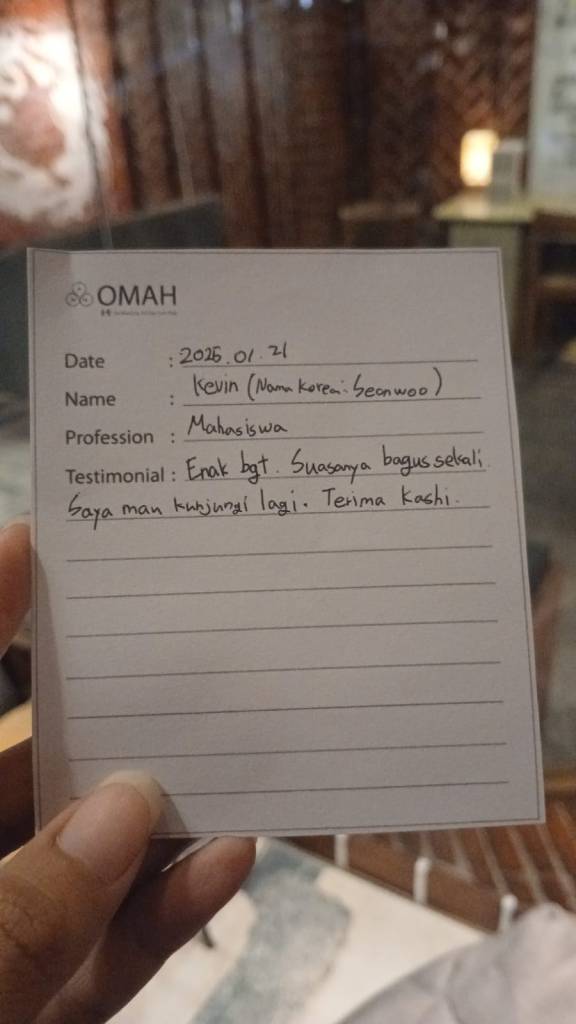 OMAH
Date : 2025.01.21
Name : Kevin (Nama Korea: Seonwoo)
Profession : Mahasiswa
Testimonial : Enak bgt. Suasanya bagus sekali.
Saya mau kunjungi lagi. Terima kashi.